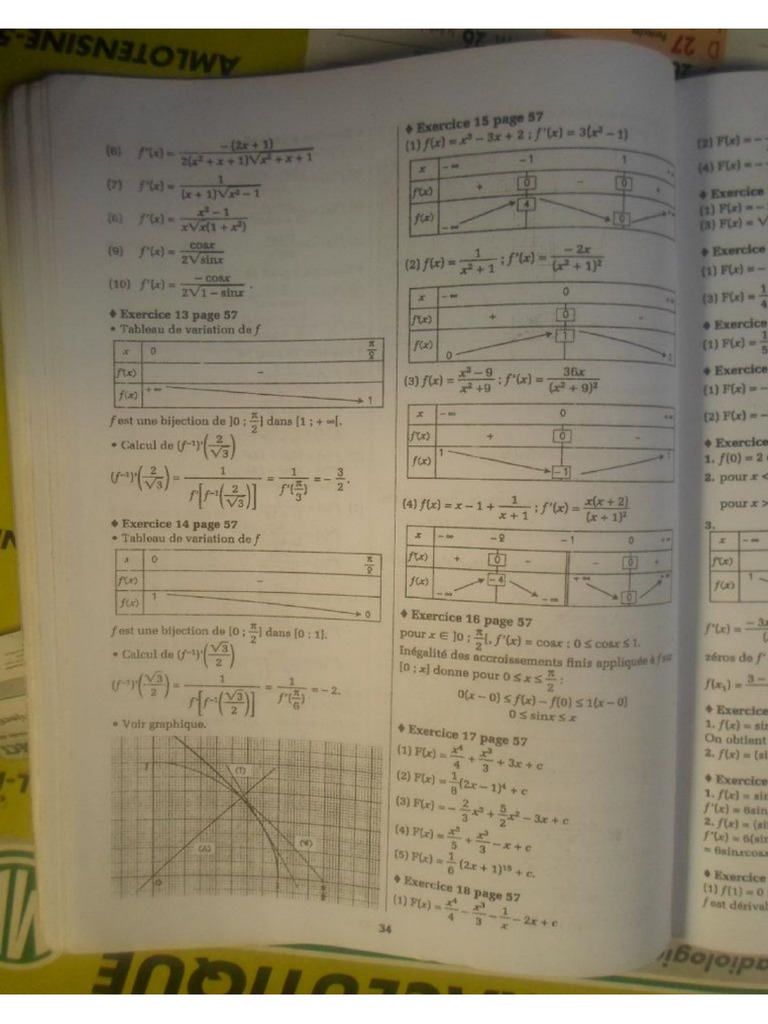 AMLOTENSINE-S
D 27
(6) f'(x) = -(2x + 1) / 2(x² + x + 1)√x² + x + 1
(7) f'(x) = 1 / (x + 1)√x² - 1
(6) f'(x) = x² - 1 / x√x(1 + x²)
(9) f'(x) = cosx / 2√sinx
(10) f'(x) = -cosx / 2√1 - sinx .
♦ Exercice 13 page 57
• Tableau de variation de f
x 0 π/2
f'(x) -
f(x) +∞ 1
f est une bijection de ]0 ; π/2] dans [1 ; +∞[.
• Calcul de (f⁻¹)'(2/√3)
(f⁻¹)'(2/√3) = 1 / f'[f⁻¹(2/√3)] = 1 / f'(π/3) = -3/2.
♦ Exercice 14 page 57
• Tableau de variation de f
x 0 π/2
f'(x) -
f(x) 1 0
f est une bijection de [0 ; π/2] dans [0 ; 1].
• Calcul de (f⁻¹)'(√3/2)
(f⁻¹)'(√3/2) = 1 / f'[f⁻¹(√3/2)] = 1 / f'(π/6) = -2.
• Voir graphique.
1 (T)
(Δ)
0
♦ Exercice 15 page 57
(1) f(x) = x³ - 3x + 2 ; f'(x) = 3(x² - 1)
x -∞ -1 1 +∞
f'(x) + 0 - 0 +
f(x) -∞ 4 0 +∞
(2) f(x) = 1 / x² + 1 ; f'(x) = -2x / (x² + 1)²
x -∞ 0 +∞
f'(x) + 0 -
f(x) 0 1 1
(3) f(x) = x² - 9 / x² + 9 ; f'(x) = 36x / (x² + 9)²
x -∞ 0 +∞
f'(x) + 0 -
f(x) 1 -1 1
(4) f(x) = x - 1 + 1 / x + 1 ; f'(x) = x(x + 2) / (x + 1)²
x -∞ -2 -1 0 +∞
f'(x) + 0 - - 0 +
f(x) -∞ -4 -∞ +∞ 0 +∞
♦ Exercice 16 page 57
pour x ∈ ]0 ; π/2[, f'(x) = cosx ; 0 ≤ cosx ≤ 1.
Inégalité des accroissements finis appliquée à f sur
[0 ; x] donne pour 0 ≤ x ≤ π/2 :
0(x - 0) ≤ f(x) - f(0) ≤ 1(x - 0)
0 ≤ sinx ≤ x
♦ Exercice 17 page 57
(1) F(x) = x⁴/4 + x³/3 + 3x + c
(2) F(x) = 1/8(2x - 1)⁴ + c
(3) F(x) = -2/3x³ + 5/2x² - 3x + c
(4) F(x) = x⁵/5 + x³/3 - x + c
(5) F(x) = 1/6(2x + 1)¹⁵ + c.
♦ Exercice 18 page 57
(1) F(x) = x⁴/4 - x³/3 - 1/x - 2x + c
34
(2) F(x) = -
(4) F(x) = -
♦ Exercice
(1) F(x) = -
(3) F(x) = √
♦ Exercice
(1) F(x) = -
(3) F(x) =
♦ Exercice
(1) F(x) =
♦ Exercice
(1) F(x) = -
(2) F(x) = -
♦ Exercice
1. f(0) = 2
2. pour x <
pour x >
3.
x -∞
f'(x)
f(x) 1
f'(x) =
zéros de f'
f(x₁) =
♦ Exercice
1. f(x) = sin
On obtient
2. f(x) = (si
♦ Exercice
1. f(x) = sin
f'(x) = 6sin
2. f(x) = (si
f'(x) = 6(sin
= 6sinxcosx
♦ Exercice
(1) f(1) = 0
f est dérival
adiologi
ACEUTIQUE